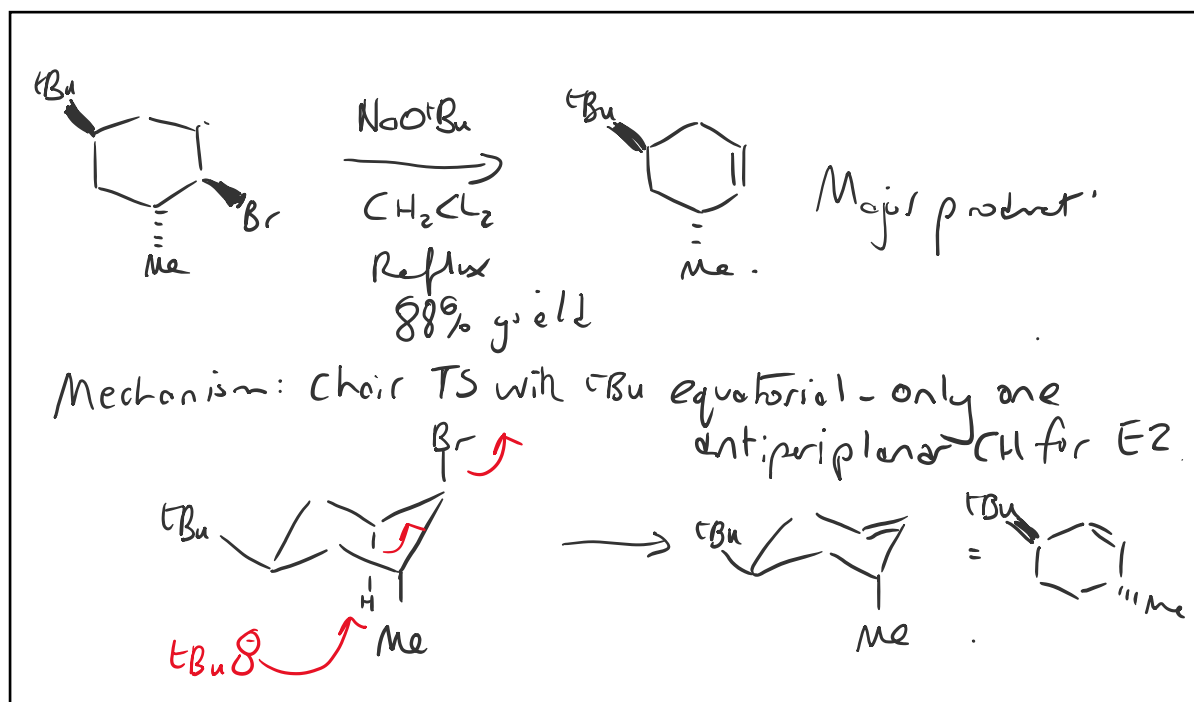 tBu
Br
Me
NaOtBu
CH2CL2
Reflux
88% yield
tBu
Me.
Major product
Mechanism: Chair TS with tBu equatorial - only one
antiperiplanar CH for E2.
Br
tBu
H
Me
tBuO⊖
tBu
Me
=
tBu
Me